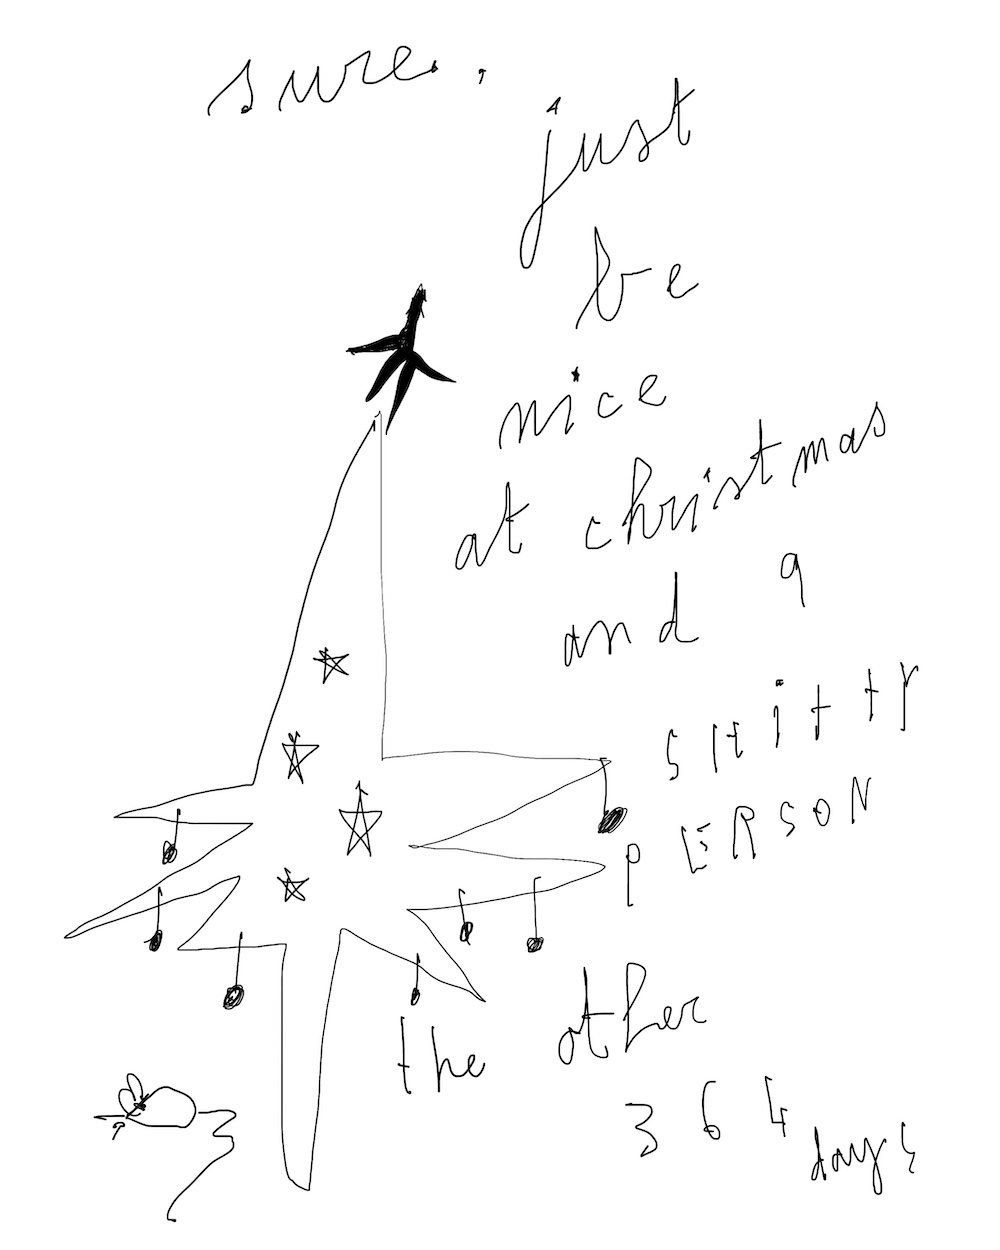 sure.,
just
be
nice
at christmas
and a
SHitty
PERSON
the other
364
days